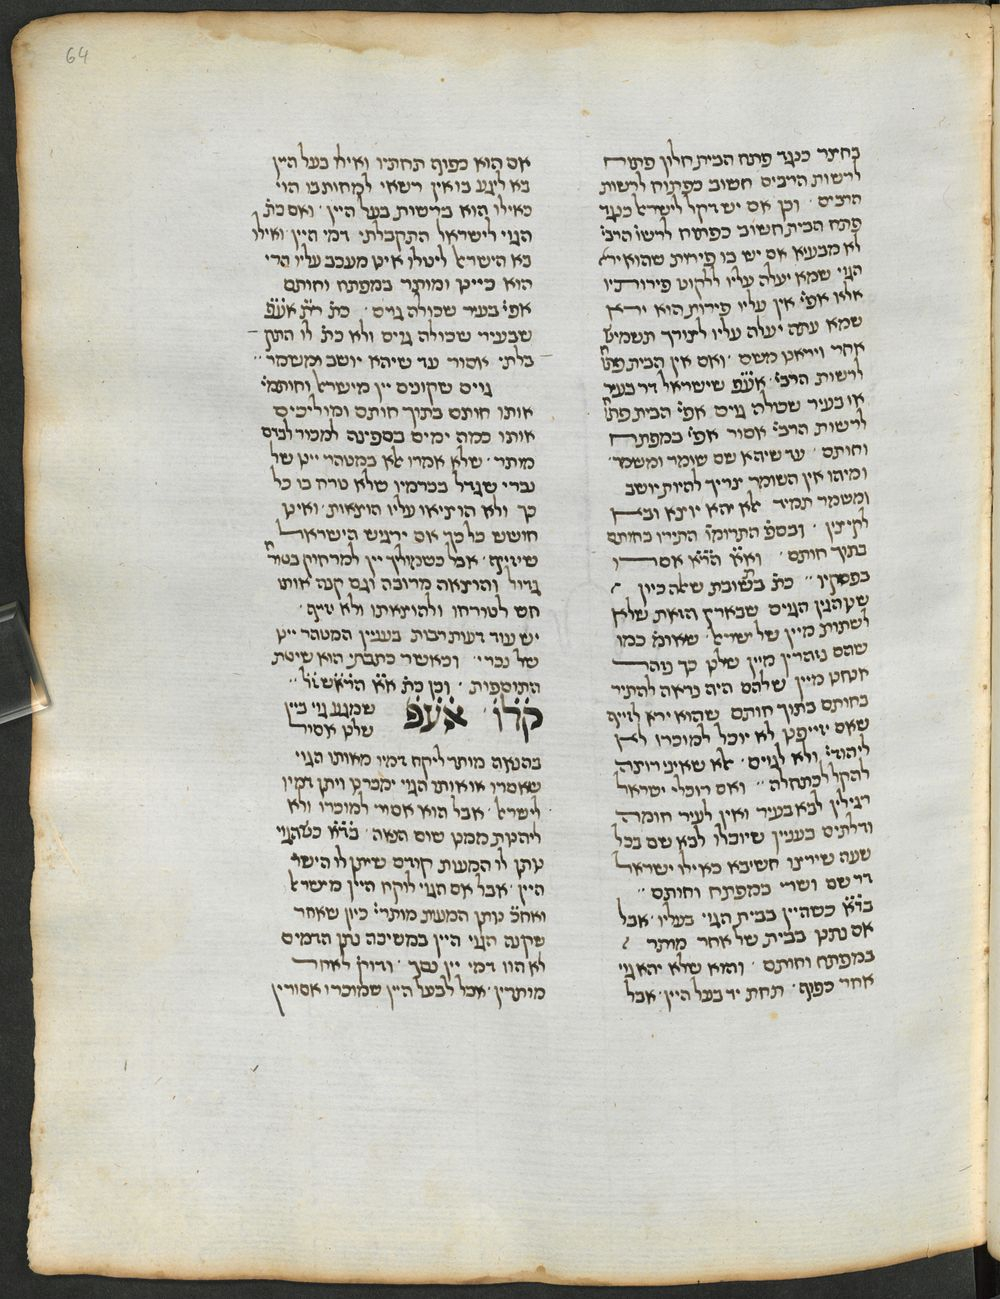 64
בחצר כנגד פתח הבית חלון פתוח
לרשות הרבים חשוב כפתוח לרשות
הרבים ׳ וכן אם יש דקל לישרא׳ כנגד
פתח הבית חשוב כפתוח לרשו׳ הרבי׳
לא מבעיא אם יש בו פירות שהוא ירא
הגוי שמא יעלה עליו ללקוט פירותיו
אלא אפי׳ אין עליו פירות הוא ירא
שמא עתה יעלה עליו לצורך תשמיש
אחר ויראנו משם ׳ ואם אין הבית פתו׳
לרשות הרבי׳ אע״פ שישראל דר בעיר
או בעיר שכולה גוים אפי׳ הבית פתו׳
לרשות הרבי׳ אסור אפי׳ במפתח
וחותם ׳ עד שיהא שם שומר ומשמר ׳
ומיהו אין השומר צריך להיות יושב
ומשמר תמיד אלא יהא יוצא ובא
לקיצין ׳ ובספ׳ התרומו׳ התירו בחותם
בתוך חותם ׳ וא״א הרא״ש אסרו
בפסקיו ׳׳ כת׳ בתשובת שאלה כיון
שמנהגן הגוים שבארץ הזאת שלא
לשתות מיין של ישרא׳ שאומ׳ כמו
שהם נזהרין מיין שלנו כך נזהר
אנחנו מיין שלהם היה נראה להתיר
בחותם בתוך חותם שהוא ירא לזייף
שאם יזייפנו לא יוכל למוכרו לא
ליהודי׳ ולא לגוים ׳ אלא שאיני רוצה
להקל לכתחלה ׳׳ ואם רוכלי ישראל
רגילין לבא בעיר ואין לעיר חומה
ודלתים בענין שיוכלו לבא שם בכל
שעה שירצו חשיבא כאילו ישראל
דר שם ושרי במפתח וחותם ׳׳
בד״א כשהיין בבית הגוי בעליו ׳ אבל
אם נתנו בבית של אחר מותר
במפתח וחותם ׳ והוא שלא יהא גוי
אחר כפוף ׳ תחת יד בעל היין ׳ אבל
אם הוא כפוף תחתיו ואילו בעל היין
בא ליגע בו אין רשאי למחות בו הוי
כאילו הוא ברשות בעל היין ׳ ואם כת׳
הגוי לישראל התקבלתי דמי היין ׳ ואילו
בא הישרא׳ ליטלו אינו מעכב עליו הרי
הוא כיינו ומותר במפתח וחותם
אפי׳ בעיר שכולה גוים ׳ כת׳ ר״ת אע״פ
שבעיר שכולה גוים ולא כת׳ לו התק
בלתי אסור עד שיהא יושב ומשמר ׳׳
גוים שקונים יין מישרא׳ וחותמי׳
אותו חותם בתוך חותם ומוליכים
אותו כמה ימים בספינה למכור לגוים
מותר ׳ שלא אמרו אלא במטהר יינו של
נכרי שגדל בכרמין שלא טרח בו כל
כך ולא הוציאו עליו הוצאות ׳ ואינו
חושש כל כך אם ירגיש הישראל
שיזייף ׳ אבל כשמוליך יין למרחוק בטור׳
גדול והוצאה מרובה וגם קנה אותו
חס לטורחו ולהוצאתו ולא יזייף ׳
יש עוד דעות רבות בענין המטהר יינו
של נכרי ׳ וכאשר כתבתי הוא שיטת
התוספות ׳ וכן כת׳ א״א הרא״ש ז״ל ׳׳
קלו׳ אע״פ שמגע גוי ביין
שלנו אסור
בהנאה מותר ליקח דמיו מאותו הגוי
שאסרו או אותו הגוי ימכרנו ויתן דמיו
לישרא׳ ׳ אבל הוא אסור למוכרו ולא
ליהנות ממנו שום הנאה ׳ בד״א כשהגוי
נותן לו המעות קודם שיתן לו הישר׳
היין ׳ אבל אם הגוי לוקח היין מישרא׳
ואח״כ נותן המעות מותרי׳ כיון שאחר
שקנה הגוי היין במשיכה נתן הדמים
לא הוו דמי יין נסך ׳ ודוק׳ לאחר
מותרין ׳ אבל לבעל היין שמוכרו אסורין